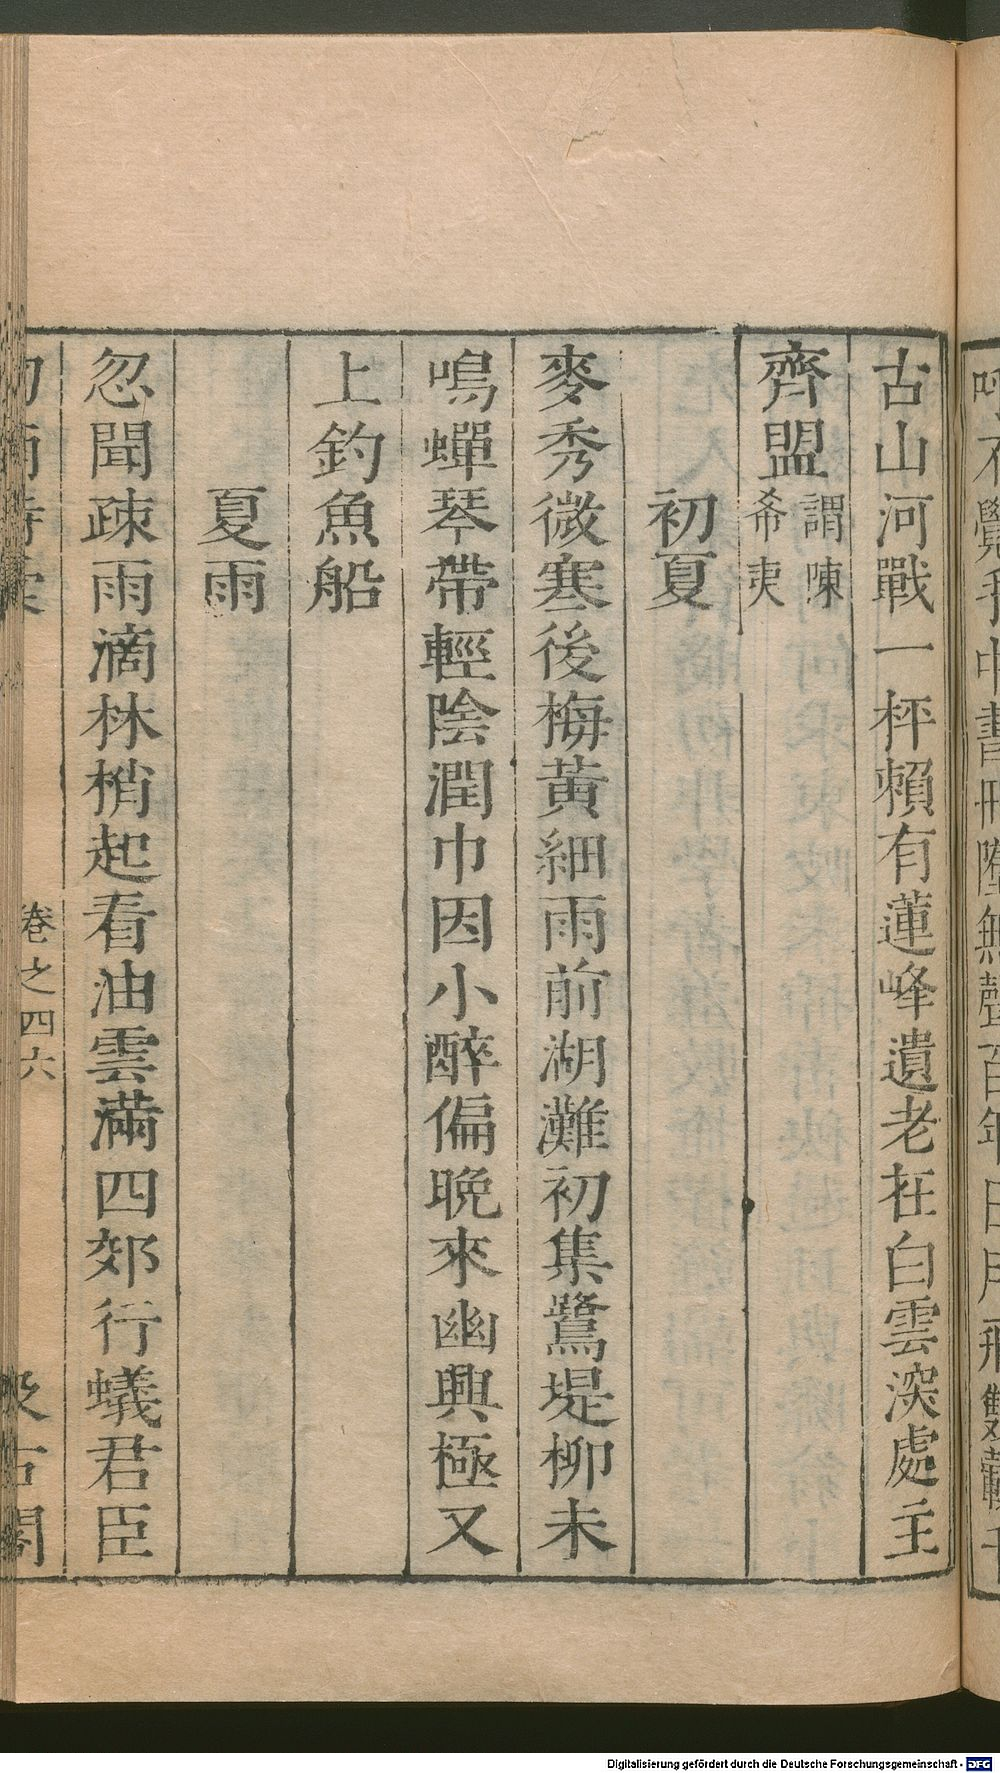 古山河戰一枰賴有蓮峰遺老在白雲深處主
齊盟謂陳希夷
初夏
麥秀微寒後梅黃細雨前湖灘初集鷺堤柳未
鳴蟬琴帶輕陰潤巾因小醉偏晚來幽興極又
上釣魚船
夏雨
忽聞疎雨滴林梢起看油雲滿四郊行蟻君臣
卷之四六
Digitalisierung gefördert durch die Deutsche Forschungsgemeinschaft - DFG